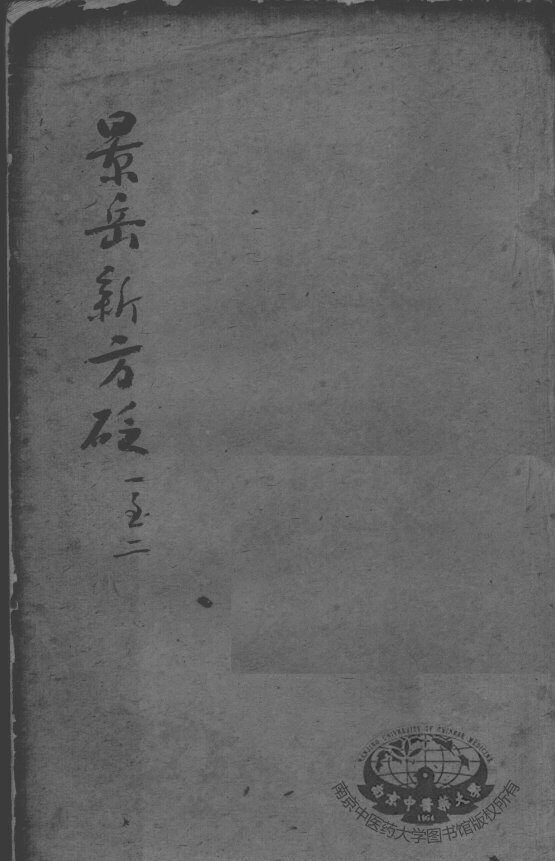 景岳新方砭 一至二
NANJING UNIVERSITY OF CHINESE MEDICINE
南京中醫藥大學
1954
南京中医药大学图书馆版权所有